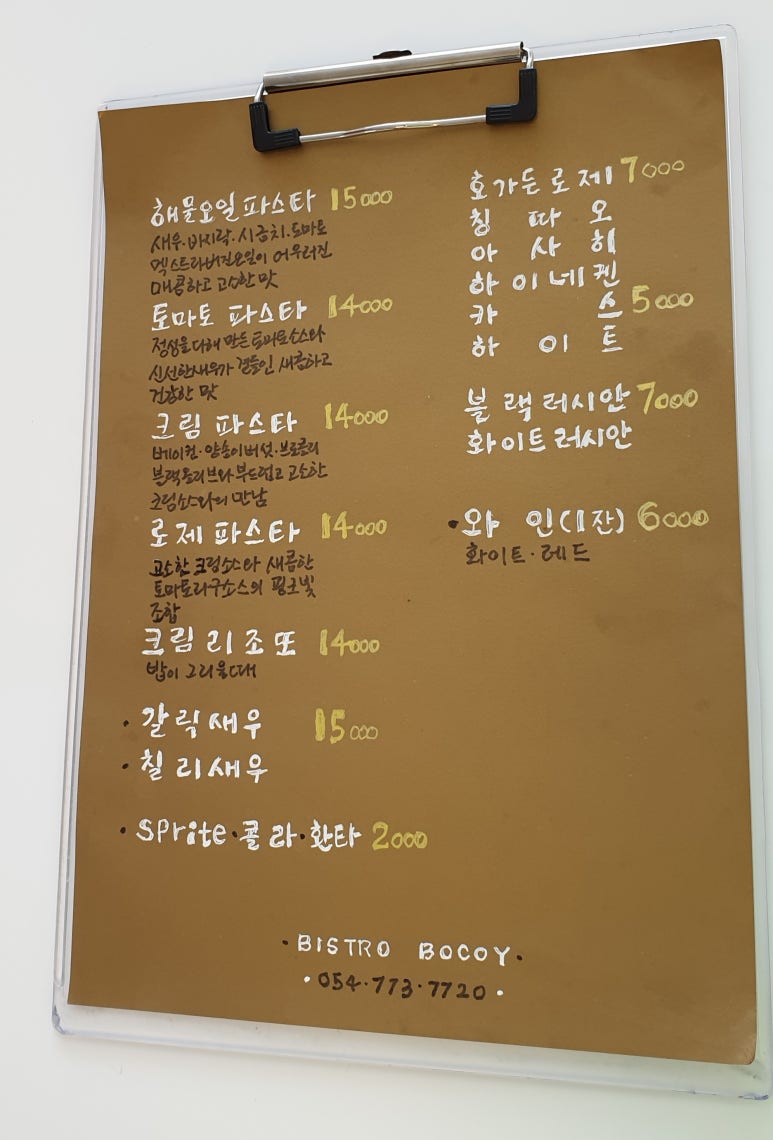 해물오일파스타 15000
새우·바지락·시금치·토마토
엑스트라버진오일이 어우러진
매콤하고 고소한 맛
토마토 파스타 14000
정성을 다해 만든 토마토소스와
신선한새우가 곁들인 새콤하고
건강한 맛
크림 파스타 14000
베이컨·양송이버섯·브로콜리
블랙올리브와 부드럽고 고소한
크림소스와의 만남
로제 파스타 14000
고소한 크림소스와 새콤한
토마토라구소스의 핑크빛
조합
크림리조또 14000
밥이 그리울때
·갈릭새우 15000
·칠리새우
·sprite·콜라·환타 2000
호가든로제 7000
칭따오
아사히
하이네켄
카스 5000
하이트
블랙러시안 7000
화이트러시안
·와인(1잔) 6000
화이트·레드
·BISTRO BOCOY·
·054·773·7720·